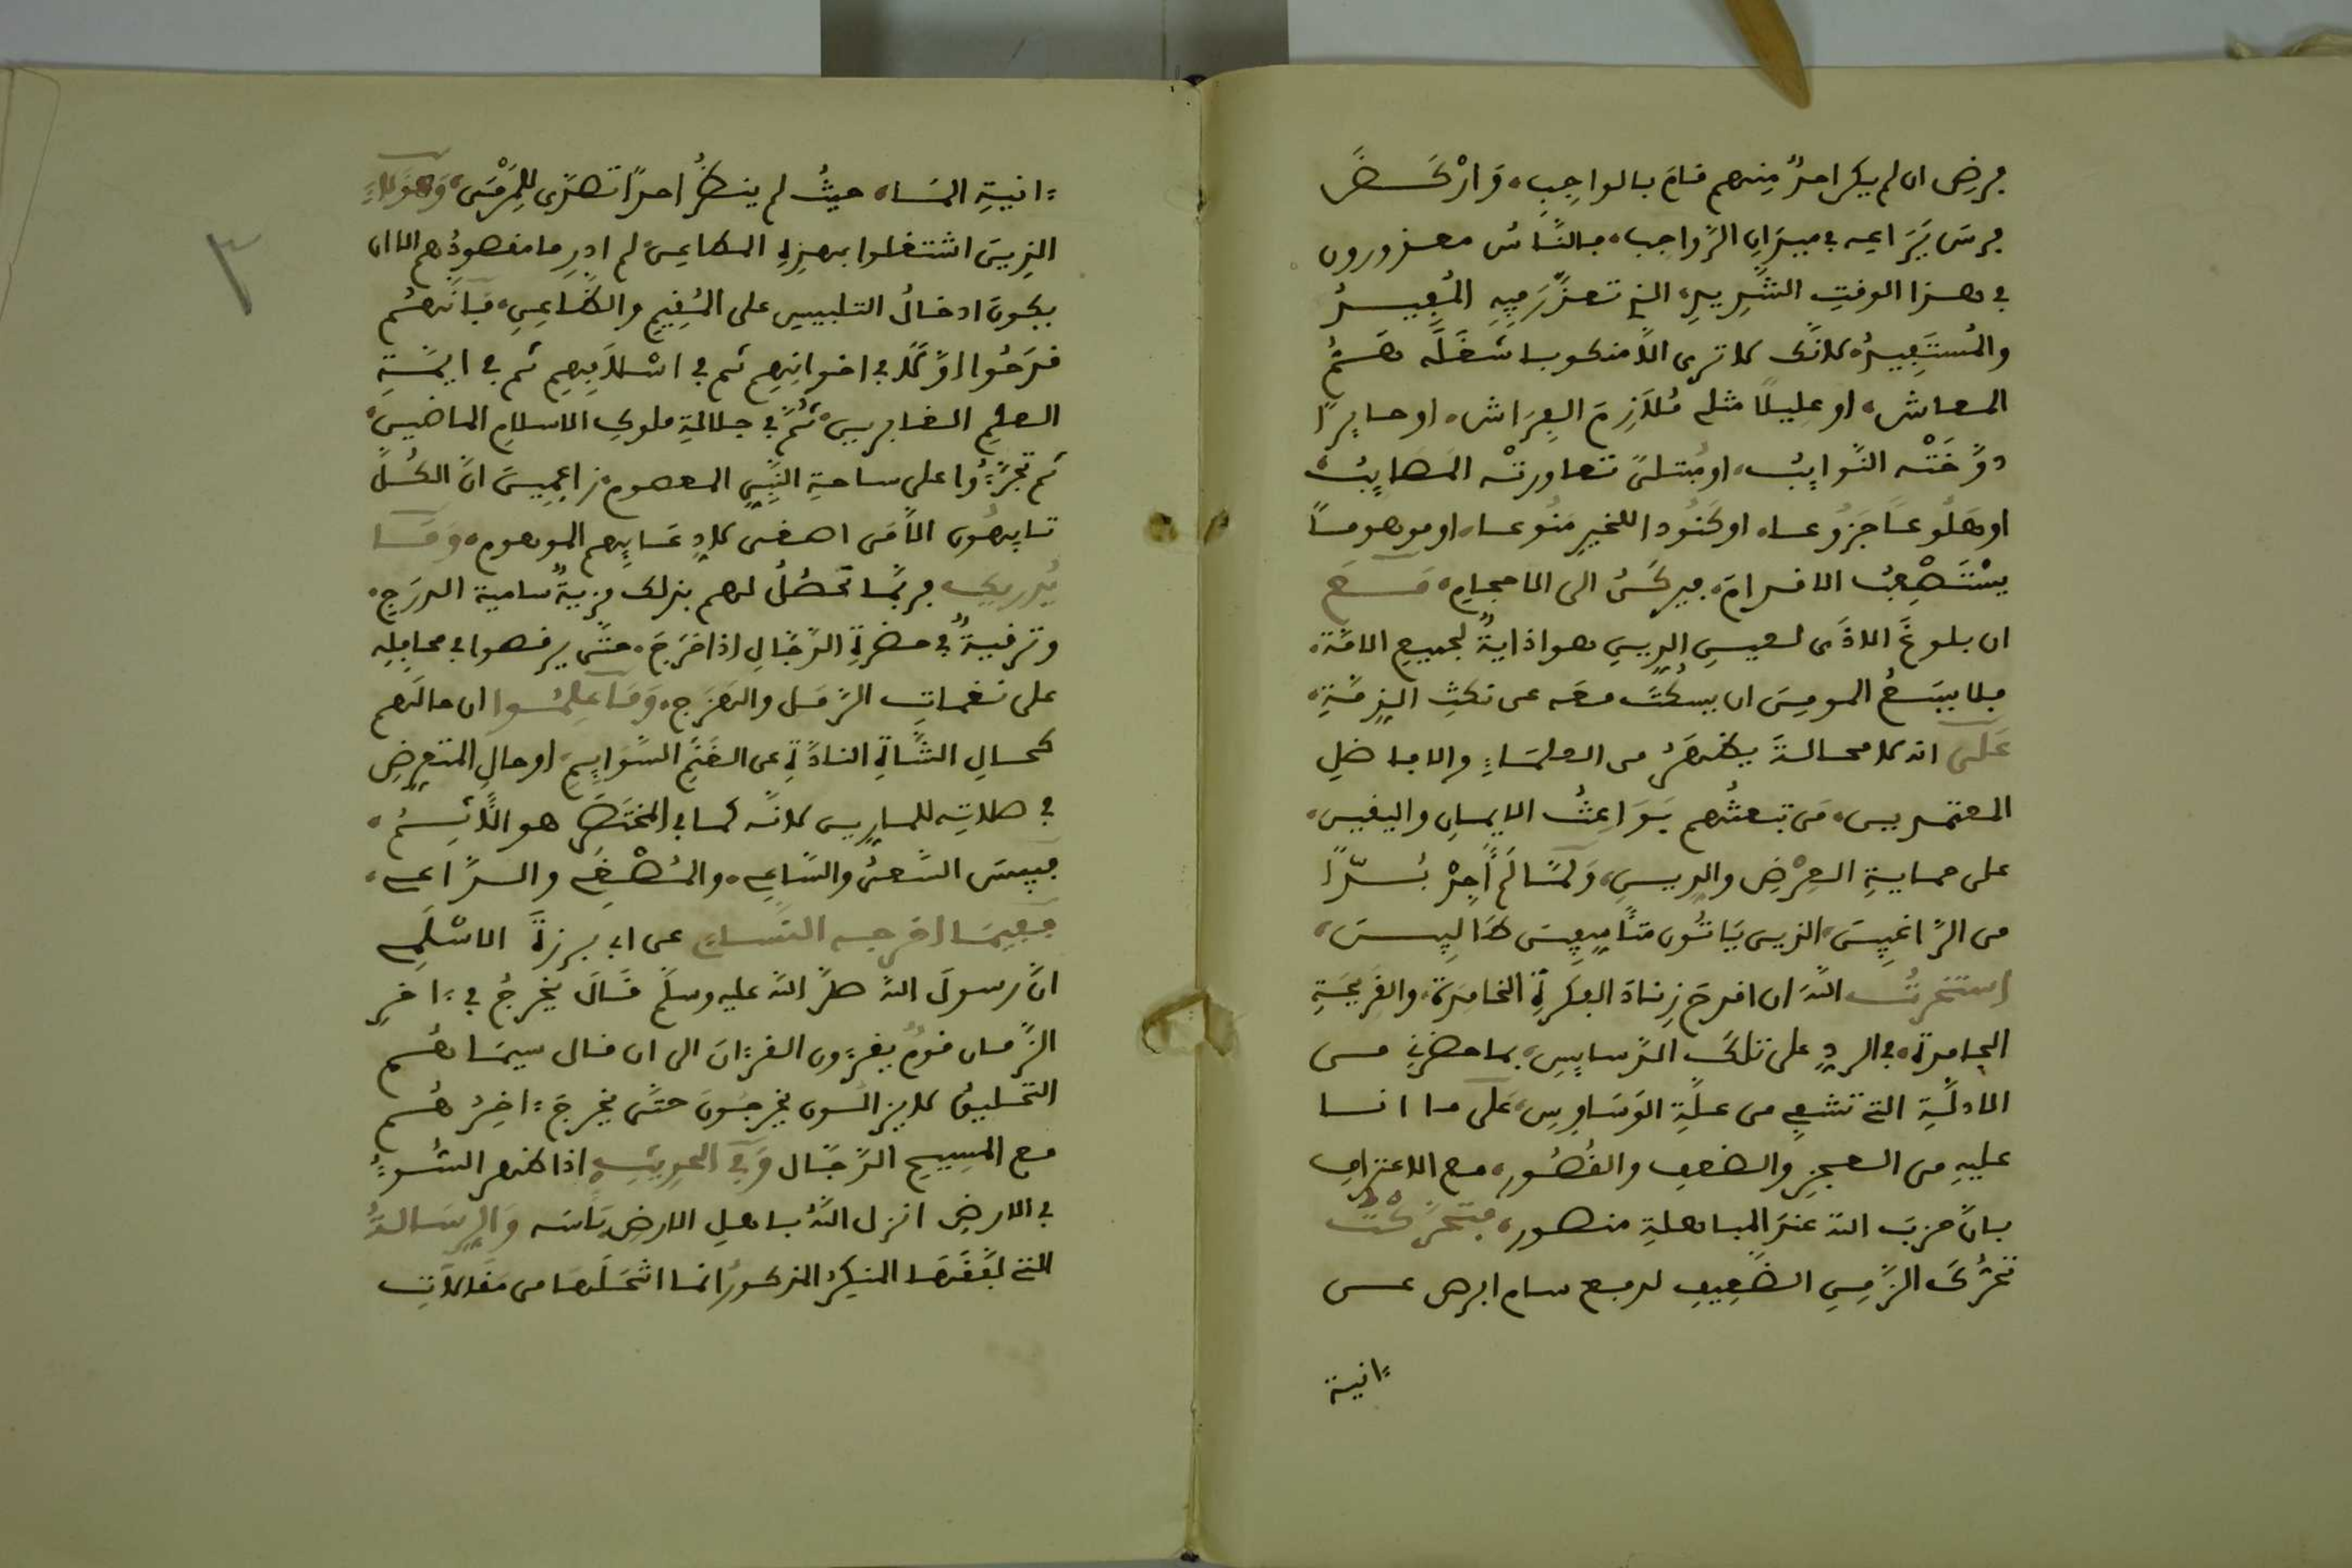 فرض ان لم يكن احدٌ منهم قامَ بالواجب، وَارْكَضَ
فرسَ يَرَاعِه في ميدَانِ الرَّواجِب، فالنَّاسُ معذورون
في هذا الوقتِ الشَّدِيدِ، الذي تعذَّرَ فِيهِ المُفِيدُ
والمُسْتَفِيدُ، لانَّك لا ترى الَّا منكوبا شَغَلَه هَمُّ
المعاش، او عليلًا مثلي مُلَازِمَ الفِرَاش، او حايرًا
دوَّخَتْه النَّوايِبُ، او مُبتلىً تعاورتْه المَصايِبُ،
او هَلُوعًا جَزُوعا، او كَنُودا للخيرِ مَنُوعا، او موهومًا
يسْتَصْعِبُ الاقدامَ، فيركَنُ الى الاحجامِ، مَعَ
ان بلوغَ الاذَى لعينِ الدِينِ هو اذايةٌ لجميعِ الامَّة،
فلا يسَعُ المومِنَ ان يسْكُتَ معَه عن نكثِ الذِمَّةِ،
عَلَى انه لا محالةَ يظهَرُ من العلمَاءِ والافاضلِ
المعتمدين، مَن تبعثُهم بَوَاعِثُ الايمانِ واليقين،
على حمايةِ العِرْضِ والدين، وَلمَّا لَم أَجِدْ بُدّا
من الرَّاغِبِينَ، الذين يَاتُون متَأَسِّفِينَ طَالِبِينَ،
استخرتُ اللهَ ان اقدحَ زِنادَ الفكرةِ الخامدَة، والقَرِيحَةِ
الجامدة، في الردِ على تلكَ الدَّسايِسِ، بما حضرني من
الادلَّةِ التي تشفي من علَّةِ الوَسَاوِسِ، عَلى ما انا
عليهِ من العجزِ والضعفِ والقُصُورِ، مع الاعترافِ
بانَّ حزبَ الله عندَ المباهلةِ منصور، فتحرَّكْتُ
تحرُّكَ الزَّمِنِ الضَّعِيفِ لدفع سام ابرص عن
ءانية
ءانيةِ المَاء، حيثُ لم ينظُرْ احدًا تصدَّى للِرَّمْىِ، وَهَؤُلاءِ
الذِينَ اشتغلوا بهذِهِ المطاعِنِ لم ادرِ ما مقصودُهم الا ان
يكونَ ادخالُ التلبيسِ على المُقِيمِ والظَّاعِنِ، فانَّهُم
قدَحُوا اوَّلًا في اخوانِهِم ثم في اسْلَافِهِم ثم في ايمَّةِ
العلمِ الغابرين، ثُمَّ في جلالةِ ملوكِ الاسلامِ الماضين،
ثم تجرَّءُوا على ساحةِ النَّبِيِّ المعصوم، زاعِمِينَ انَّ الكُلَّ
تايِهُون الا مَن اصغى لادِعَايِهم الموهوم، وَمَا
يُدرِيكَ فربَّما تحصُلُ لهم بذلك مزيةٌ سامية الدرَجِ،
وترقيةٌ في حضرةِ الدَّجَّالِ اذا خَرَجَ، حتَّى يرقصوا في محافِلِه
على نغماتِ الرَّمَل والهَزَج، وَمَا علِمُوا ان حالَهم
كحالِ الشَّاةِ النادَّةِ عن الغَنَمِ السَّوايِمِ، او حالِ المتعرضِ
في صلاتِه للمارين لانَّه كما في المختَصَرِ هو الَّاثِمُ،
فبِيسَ السَّعىُ والسَّاعي، والمُصْغِي والدَّاعي،
ففِيمَا اخرجه النَّسَاىُ عن ابي برزةَ الاسْلَمِي
انَّ رسولَ اللهِ صلَّى اللهُ عليه وسلَّم قَالَ يخرجُ في ءاخرِ
الزَّمان قومٌ يقرءون القرءانَ الى ان قال سيمَاهُم
التحليقُ لا يزالُون يخرجُونَ حتَّى يخرجَ ءاخِرُهُم
مع المسيحِ الدَّجَّال وَفي الحديثِ اذا ظهر السُّوءُ
في الارضِ انزل اللهُ باهلِ الارضِ بَاسَه وَالرِسَالةُ
التي لفَّقَها المنكِرُ المذكورُ انما انتحَلَها من مَقَالاتِ
٣